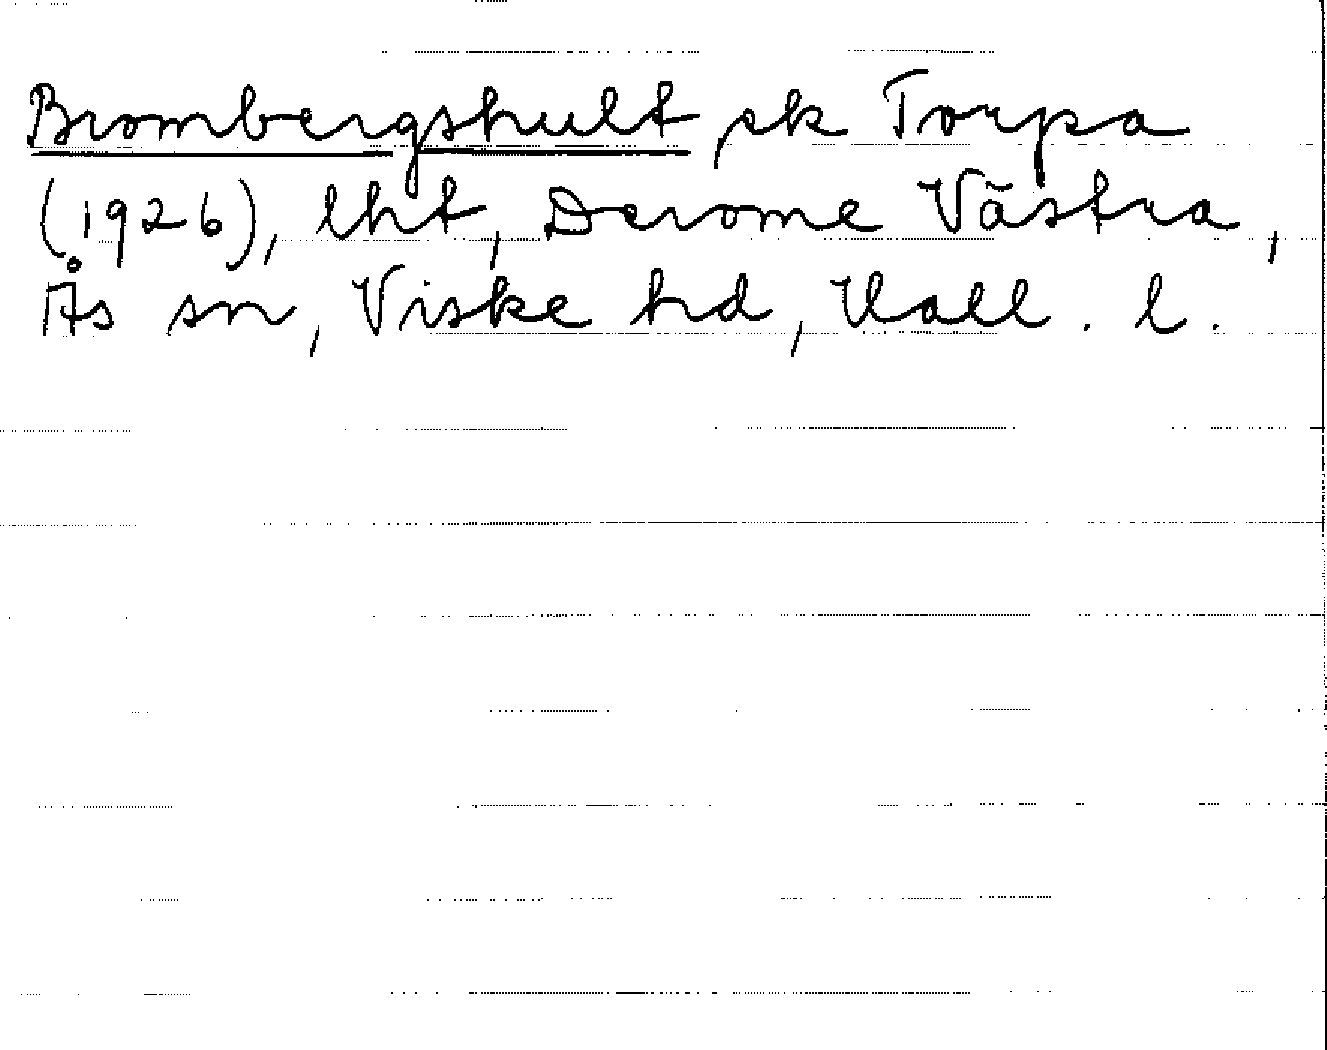 Brombergshult, sk Torpa
(1926), lht, Derome Västra,
Ås sn, Viske hd, Hall. l.